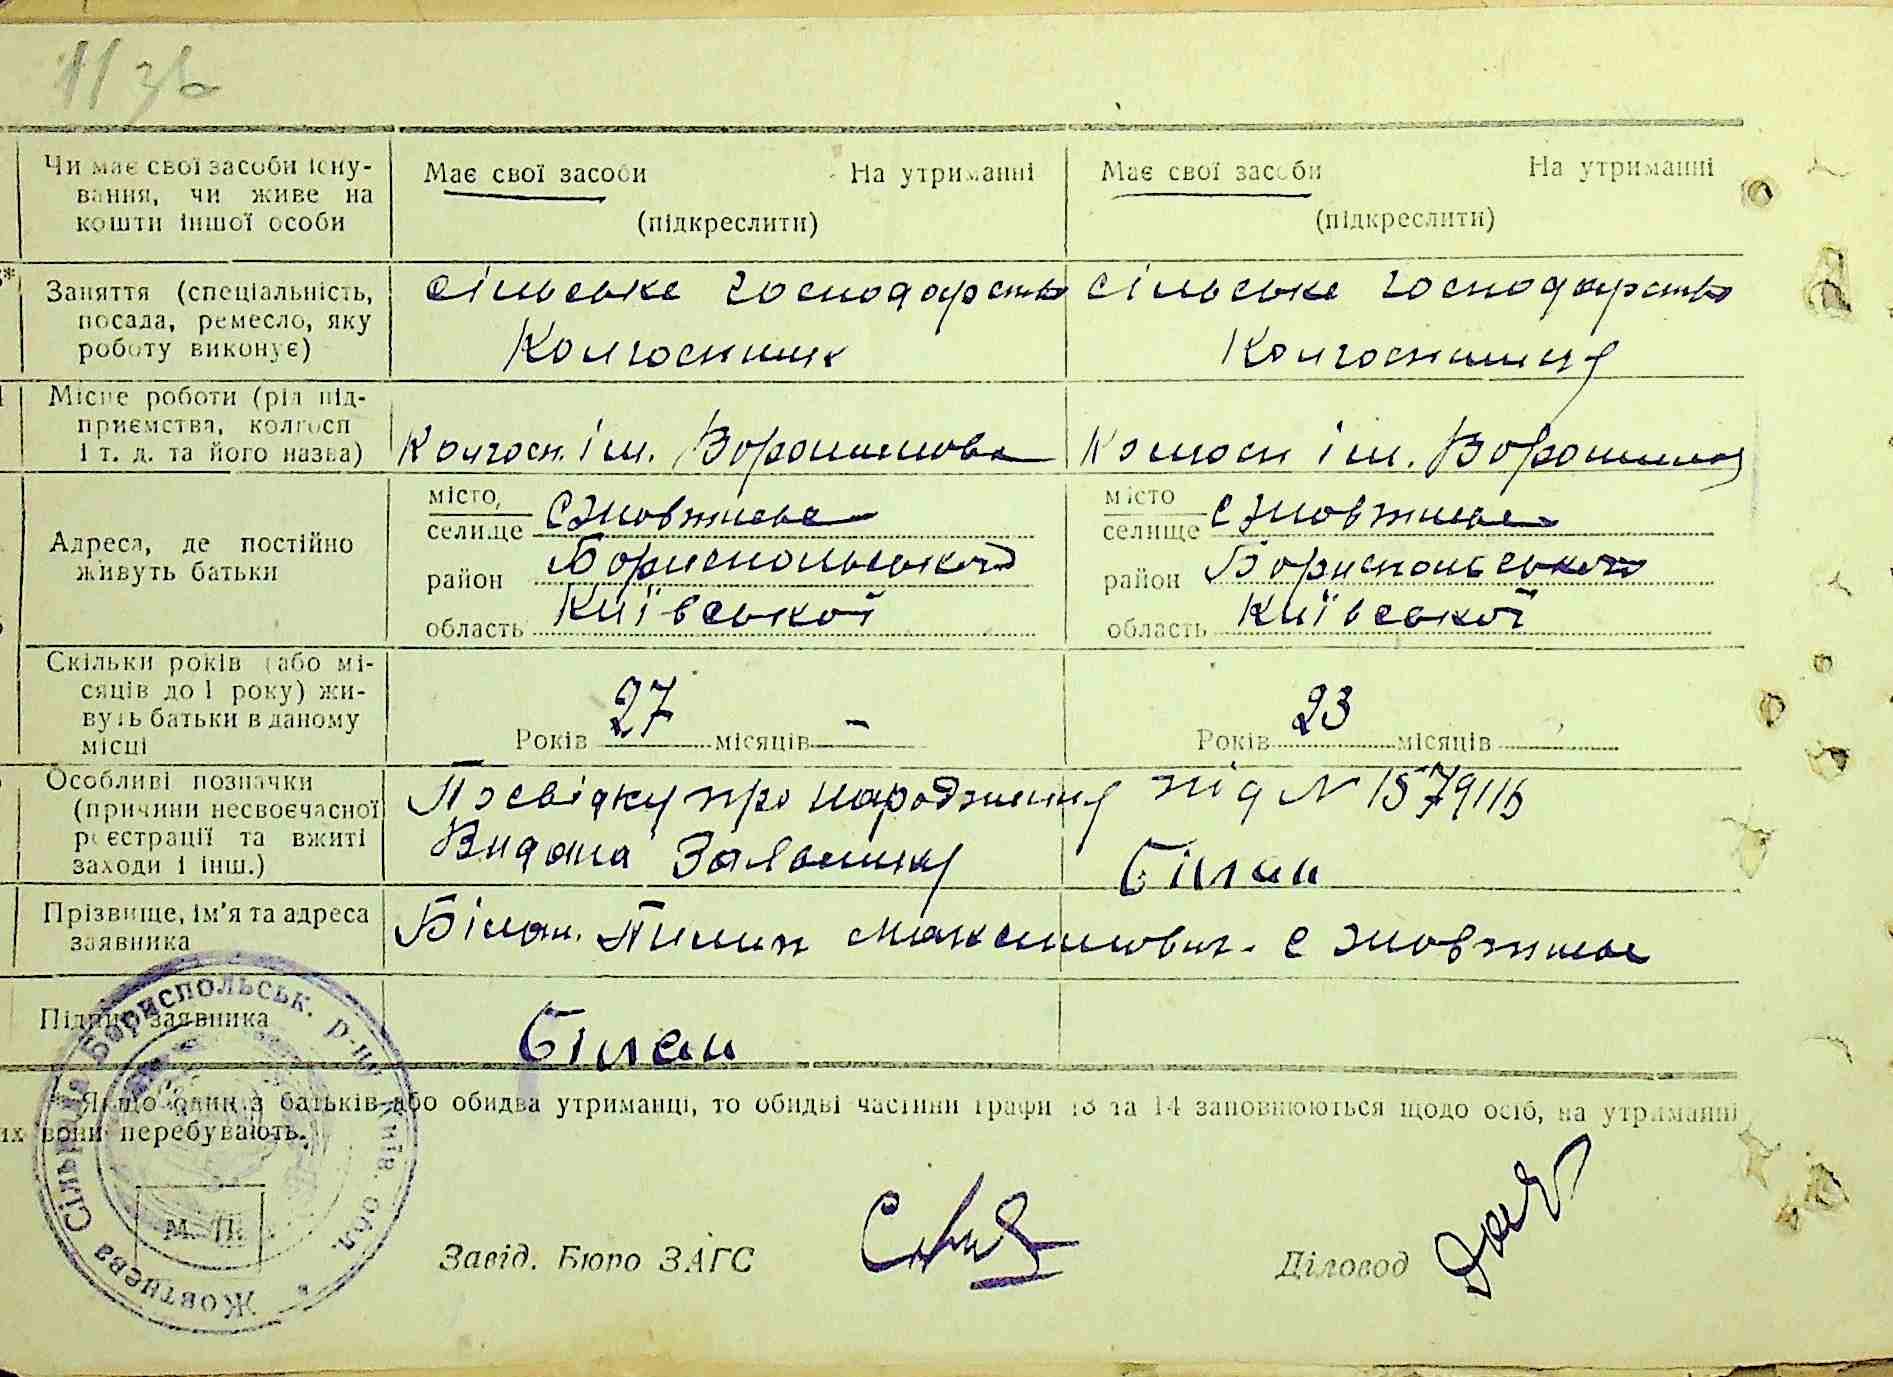 11 зв
Чи має свої засоби існу-
вання, чи живе на
кошти іншої особи
Має свої засоби На утриманні
(підкреслити)
Має свої засоби На утриманні
(підкреслити)
Заняття (спеціальність,
посада, ремесло, яку
роботу виконує)
Сільське господарство
Колгоспник
Сільське господарство
Колгоспниця
Місце роботи (рід під-
приємства, колгосп
і т. д. та його назва)
Колгосп. ім. Ворошилова
Колгосп ім. Ворошилова
Адреса, де постійно
живуть батьки
місто,
селище с Жовтневе
район Бориспольського
область Київської
місто
селище с Жовтневе
район Бориспольського
область Київської
Скільки років (або мі-
сяців до 1 року) жи-
вуть батьки в даному
місці
Років 27 місяців —
Років 23 місяців
Особливі позначки
(причини несвоєчасної
реєстрації та вжиті
заходи і інш.)
Посвідку про народження під N 1579115
Видана Заявнику Білан
Прізвище, ім'я та адреса
заявника
Білан. Пилип Максимович. с Жовтневе
Підпис заявника
Білан
* Якщо один з батьків або обидва утриманці, то обидві частини графи 13 та 14 заповнюються щодо осіб, на утриманні
их вони перебувають.
Жовтнева Сільрада Бориспольськ. р-ну Київ. обл.
М. П.
Завід. Бюро ЗАГС
Діловод